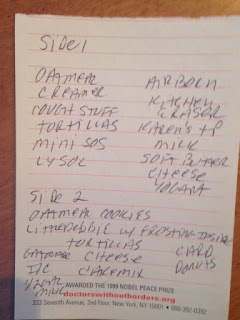 Side 1
OATMEAL
CREAMER
COUGH STUFF
TORTILLAS
MINI SOS
LYSOL
AIRBORN
KITCHEN
ERASER
KITREN'S TP
MILK
SOFT BUTTER
CHEESE
YOGART
Side 2
OATMEAL COOKIES
LITTLE DEBBIE W FROSTING INSIDE
TORTILLAS
CARD
CHEESE
DONUTS
CAKEMIX
MILK
AWARDED THE 1999 NOBEL PEACE PRIZE
doctorswithoutborders.org
333 Seventh Avenue, 2nd Floor, New York, NY 10001 • 888-392-0392